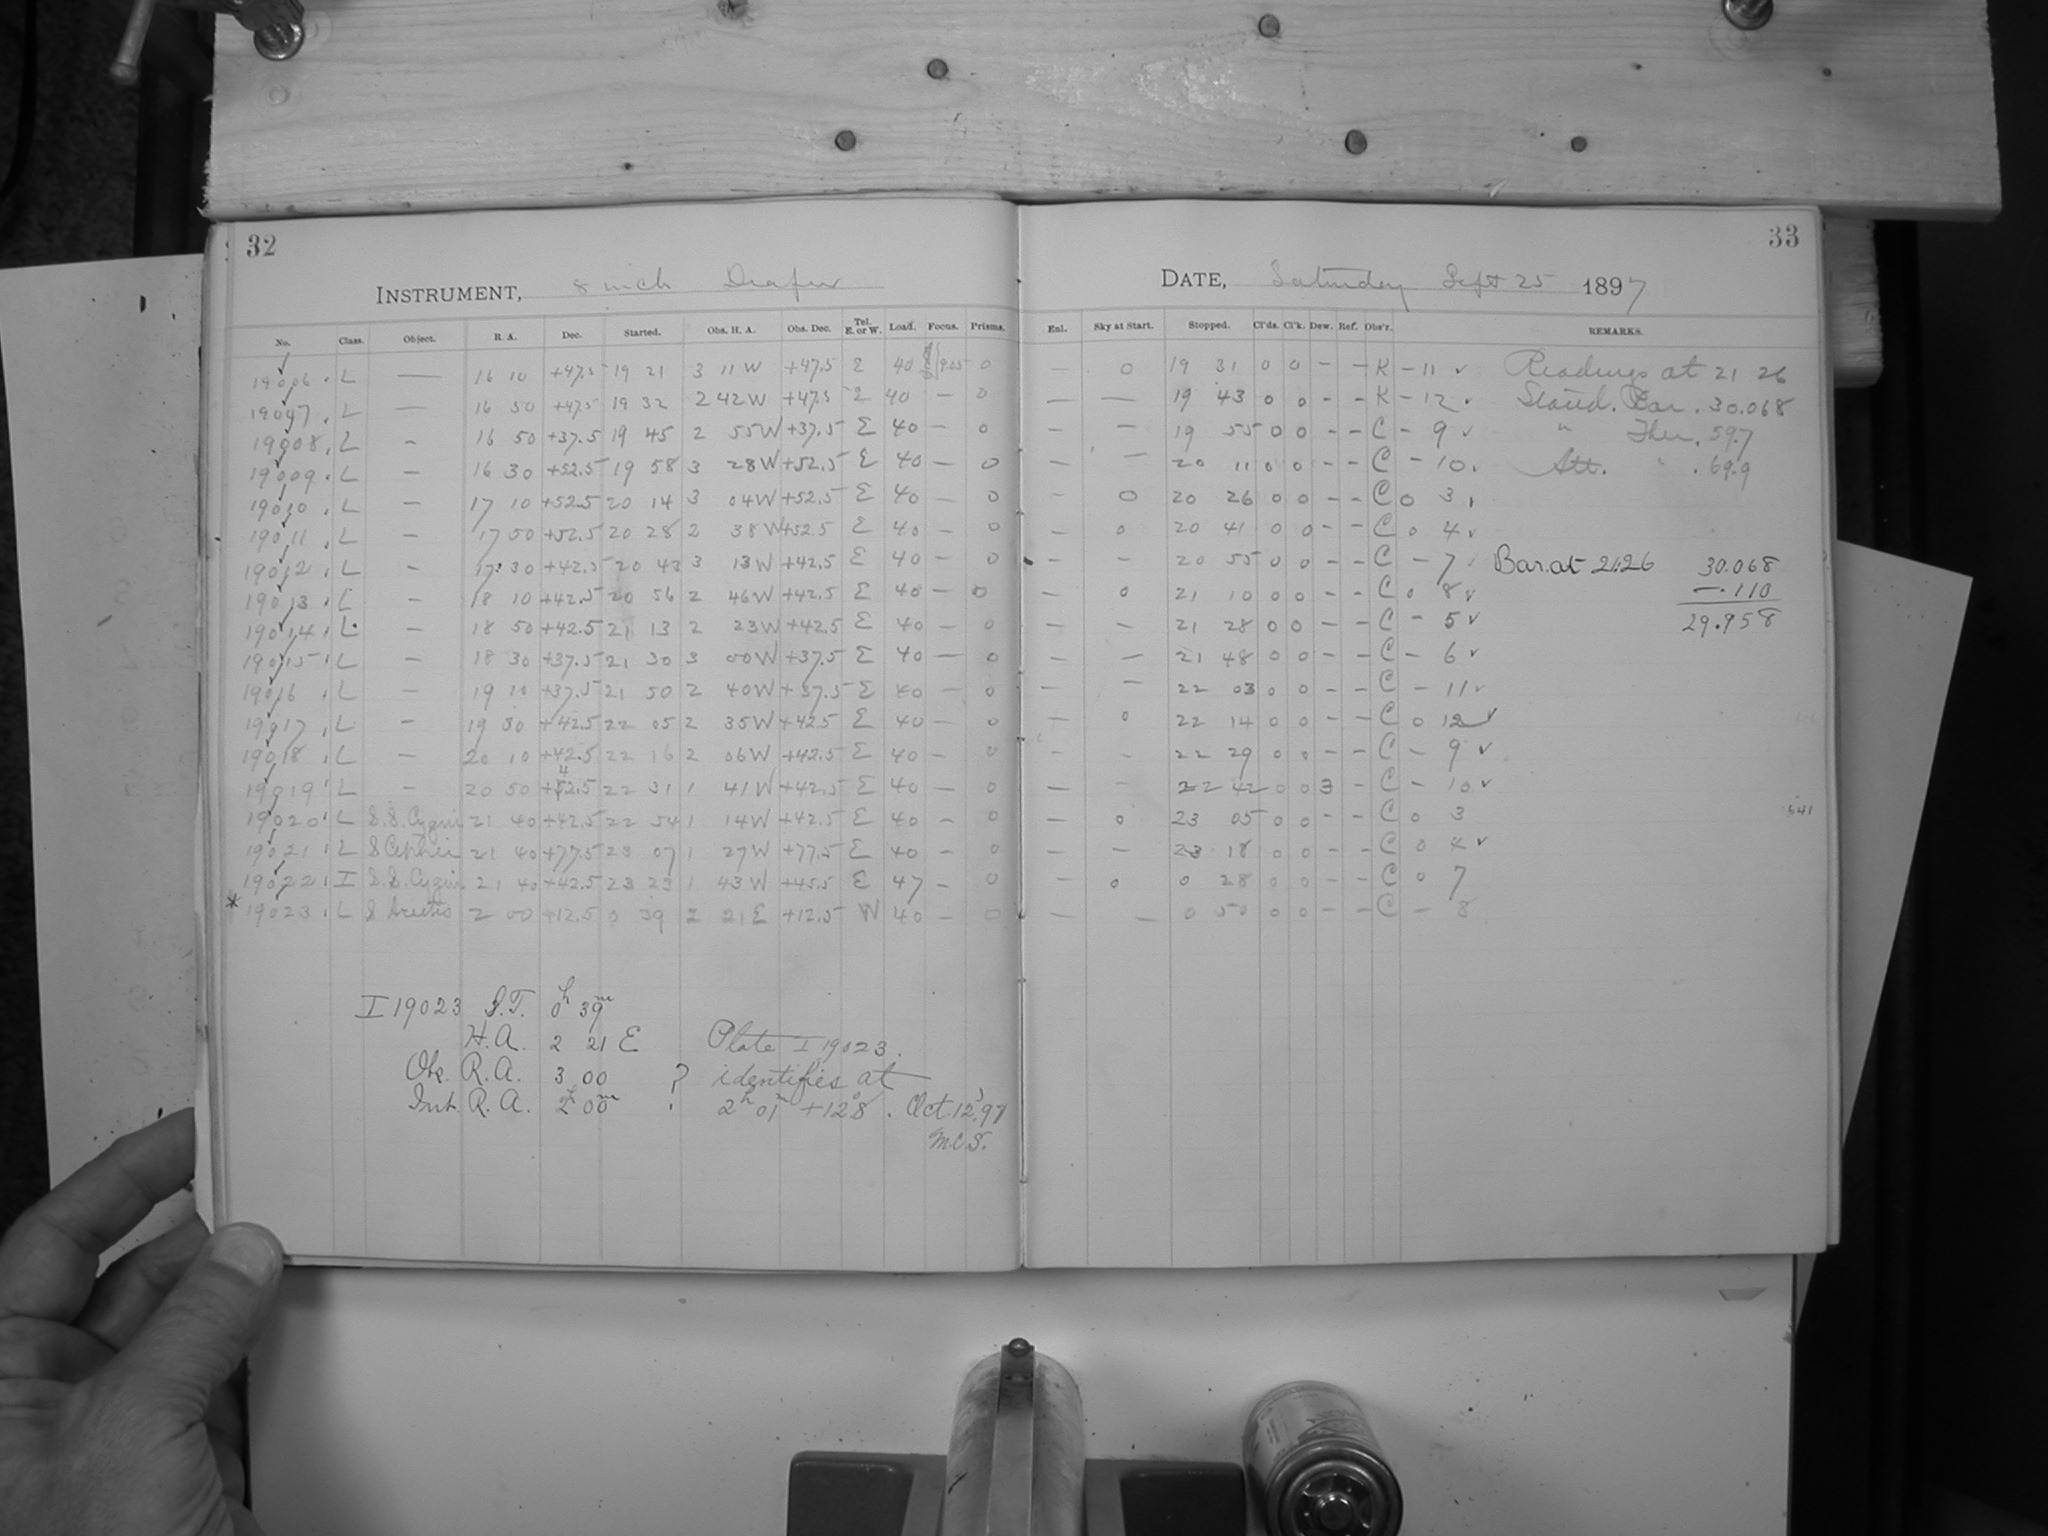 32
INSTRUMENT, 8 inch Draper
No. Class. Object. R. A. Dec. Started. Obs. H. A. Obs. Dec. Tel. E. or W. Load. Focus. Prisms.
19006 L — 16 10 +47.5 19 21 3 11 W +47.5 E 40 9.05 0
19007 L — 16 50 +47.5 19 32 2 42 W +47.5 E 40 — 0
19008 L - 16 50 +37.5 19 45 2 55 W +37.5 E 40 — 0
19009 L - 16 30 +52.5 19 58 3 28 W +52.5 E 40 — 0
19010 L - 17 10 +52.5 20 14 3 04 W +52.5 E 40 — 0
19011 L - 17 50 +52.5 20 28 2 38 W +52.5 E 40 — 0
19012 L - 17 30 +42.5 20 43 3 13 W +42.5 E 40 — 0
19013 L - 18 10 +42.5 20 56 2 46 W +42.5 E 40 — 0
19014 L - 18 50 +42.5 21 13 2 23 W +42.5 E 40 — 0
19015 L - 18 30 +37.5 21 30 3 00 W +37.5 E 40 — 0
19016 L - 19 10 +37.5 21 50 2 40 W +37.5 E 40 — 0
19017 L - 19 30 +42.5 22 05 2 35 W +42.5 E 40 — 0
19018 L - 20 10 +42.5 22 16 2 06 W +42.5 E 40 — 0
19019 L - 20 50 +42.5 22 31 1 41 W +42.5 E 40 — 0
19020 L S.S. Cygni 21 40 +42.5 22 54 1 14 W +42.5 E 40 - 0
19021 L S Cephei 21 40 +77.5 23 07 1 27 W +77.5 E 40 - 0
19022 I S.S. Cygni 21 40 +42.5 23 23 1 43 W +45.5 E 47 - 0
* 19023 L S Arietis 2 00 +12.5 0 39 2 21 E +12.5 W 40 - 0
I 19023 S.T. 0h 39m
H.A. 2 21 E
Obs. R.A. 3 00 ?
Int. R.A. 2h 00m
Plate I 19023.
identifies at
2h 01m +12°.8. Oct. 12, '97
M.C.S.
33
DATE, Saturday Sept 25 1897
Enl. Sky at Start. Stopped. Cl'ds. Cl'k. Dew. Ref. Obs'r. REMARKS.
— 0 19 31 0 0 - - K - 11 ✓ Readings at 21 26
— — 19 43 0 0 - - K - 12 ✓ Stand. Bar. 30.068
— — 19 55 0 0 - - C - 9 ✓ " Ther. 59.7
— — 20 11 0 0 - - C - 10 ✓ Att. " 69.9
— 0 20 26 0 0 - - C 0 3
— 0 20 41 0 0 - - C 0 4 ✓
— — 20 55 0 0 - - C - 7 Bar. at 21.26 30.068
— 0 21 10 0 0 - - C 0 8 ✓ -.110
— — 21 28 0 0 - - C - 5 ✓ 29.958
— — 21 48 0 0 - - C - 6 ✓
— — 22 03 0 0 - - C - 11 ✓
— 0 22 14 0 0 - - C 0 12 ✓
— - 22 29 0 0 - - C - 9 ✓
— — 22 42 0 0 3 - C - 10 ✓
— 0 23 05 0 0 - - C 0 3
— — 23 18 0 0 - - C 0 4 ✓
— 0 0 28 0 0 - - C 0 7
— — 0 50 0 0 - - C - 8